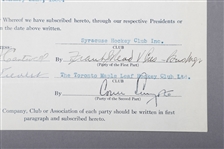 we have subscribed hereto, through our respective Presidents or
the date above written.
Syracuse Hockey Club Inc.
CLUB
(Party of the First Part)
The Toronto Maple Leaf Hockey Club Ltd.
CLUB
Conn Smythe
(Party of the Second Part)
Company, Club or Association of each party should be written in first
paragraph and subscribed hereto.